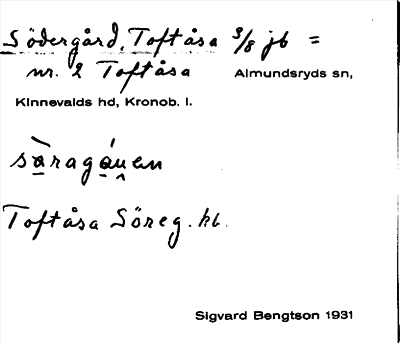 Södergård, Toftåsa 3/8 jb =
nr. 2 Toftåsa Almundsryds sn,
Kinnevalds hd, Kronob. l.
Toftåsa Söreg. kb.
Sigvard Bengtson 1931